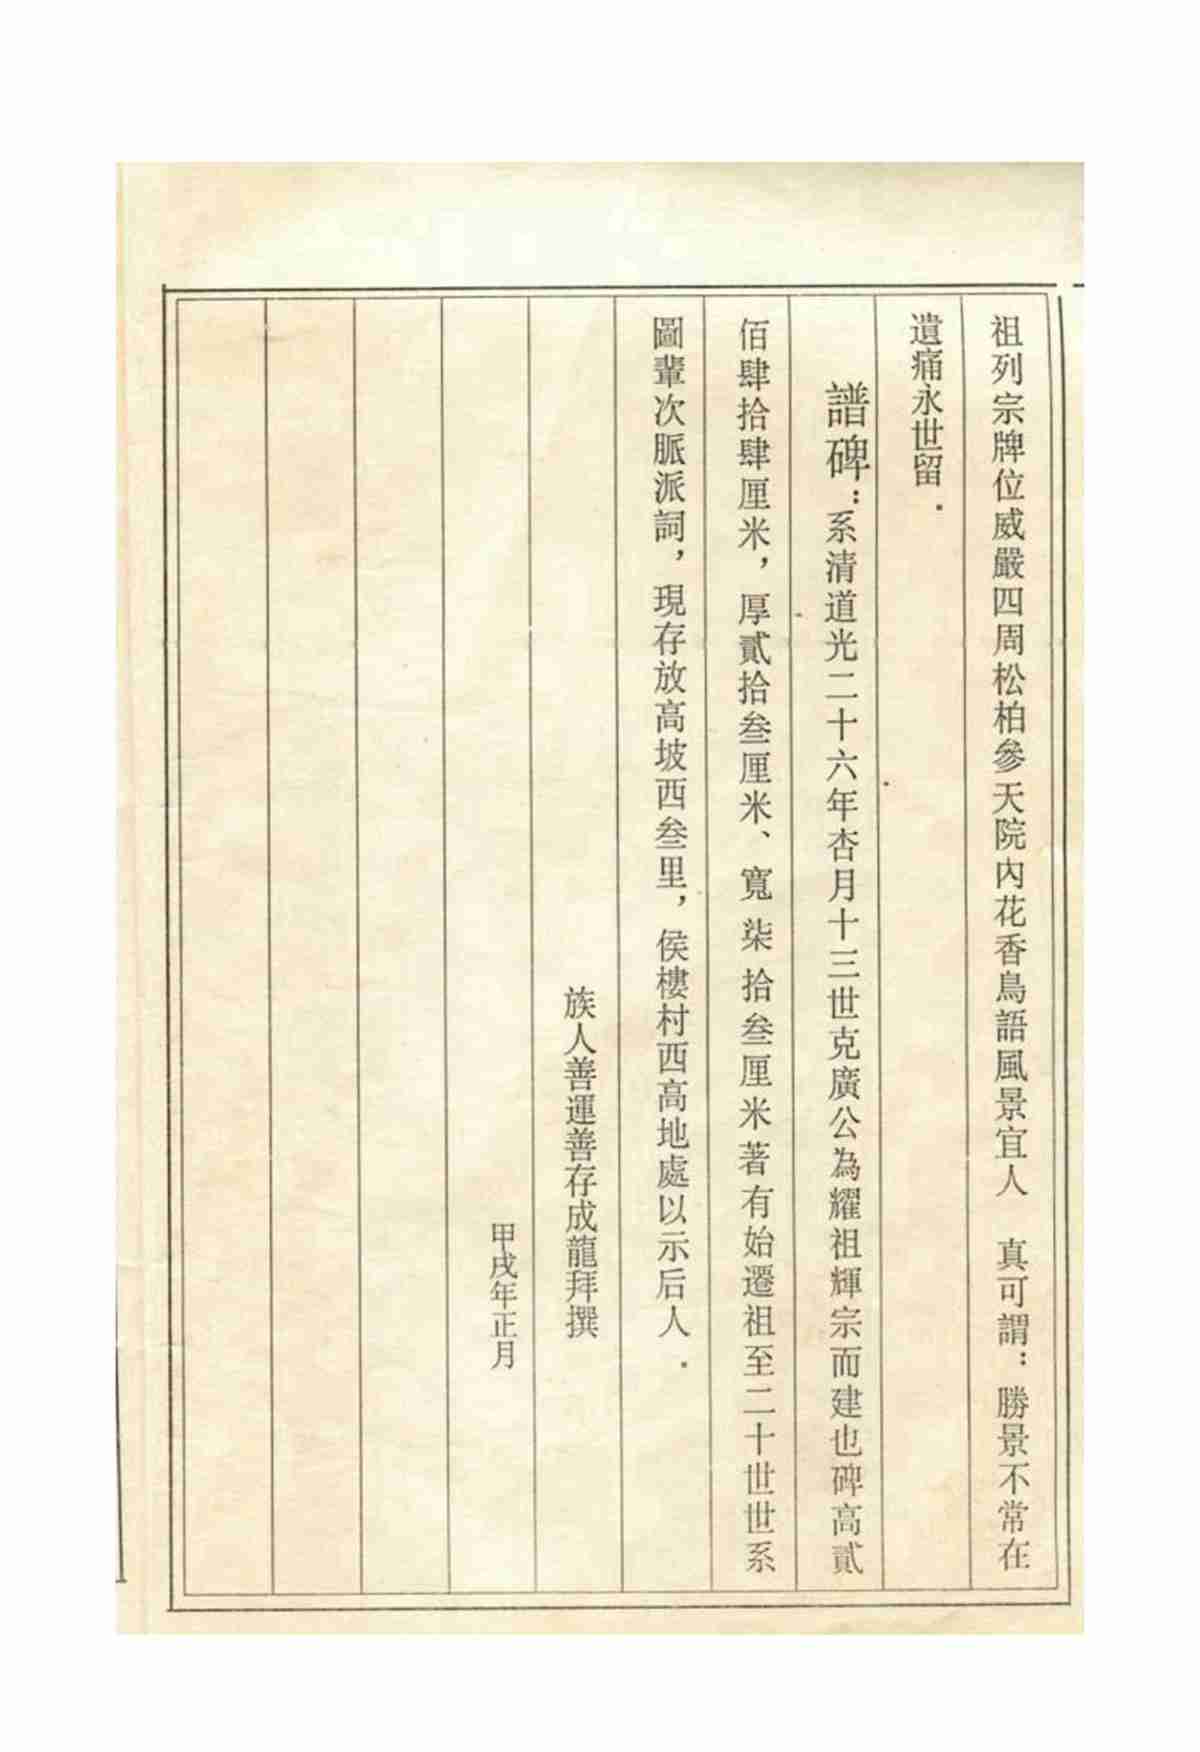 祖列宗牌位威嚴四周松柏參天院內花香鳥語風景宜人　真可謂：勝景不常在
遺痛永世留．
譜碑：系清道光二十六年杏月十三世克廣公為耀祖輝宗而建也碑高貳
佰肆拾肆厘米，厚貳拾叁厘米、寬柒拾叁厘米著有始遷祖至二十世世系
圖輩次脈派詞，現存放高坡西叁里，侯樓村西高地處以示后人．
族人善運善存成龍拜撰
甲戌年正月